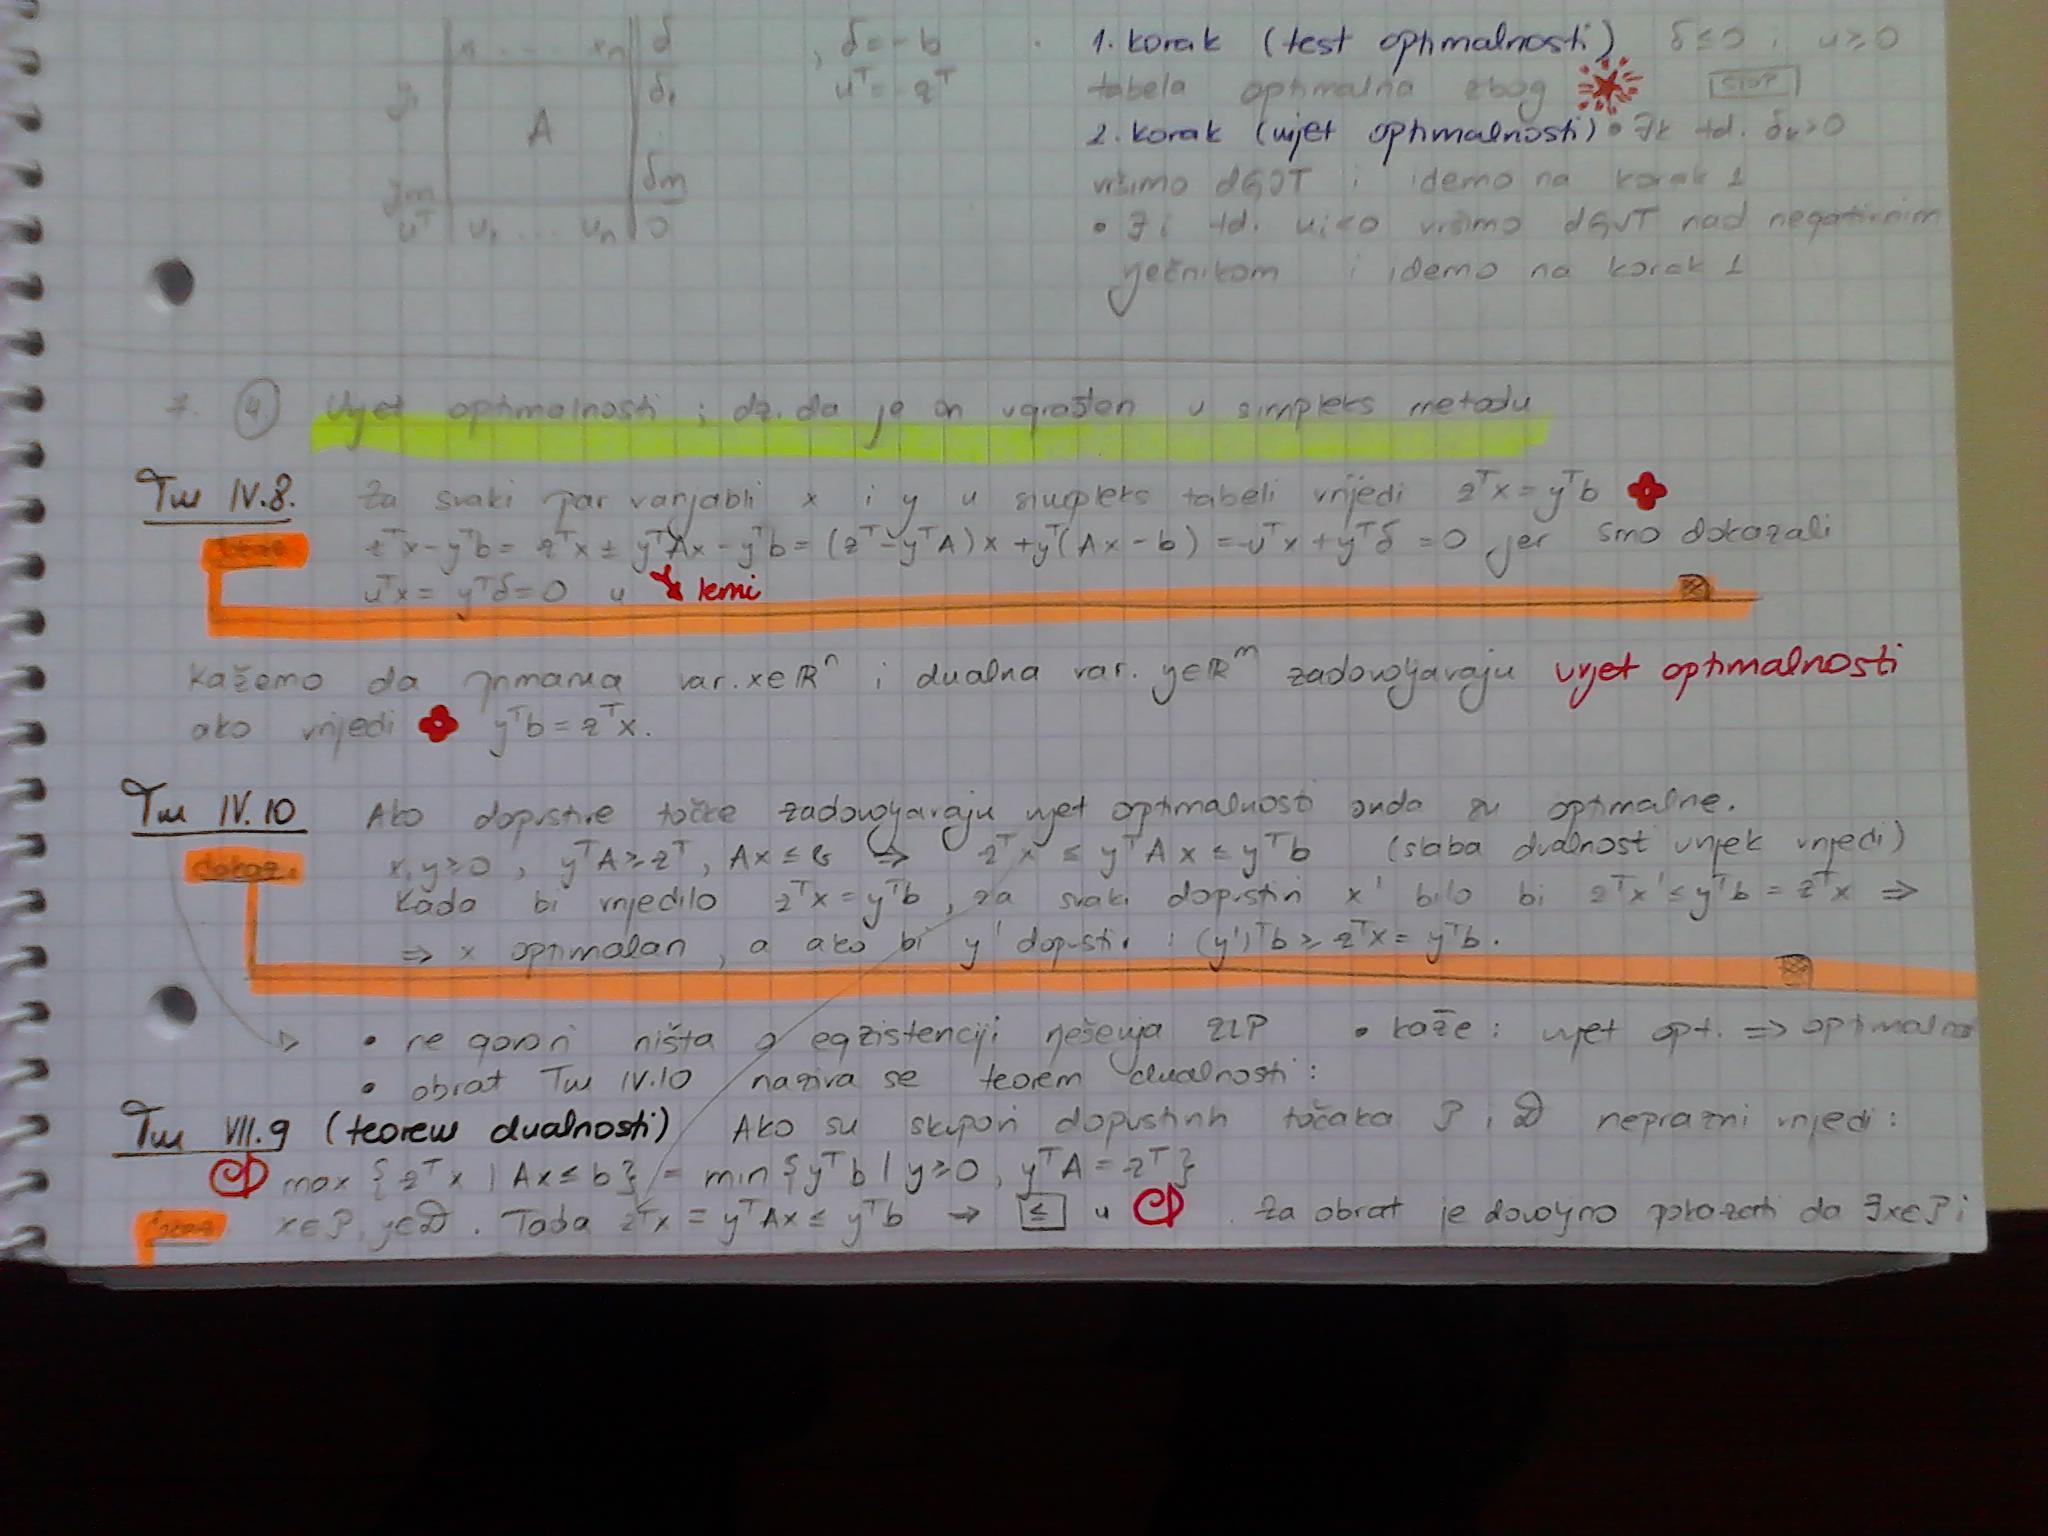 x₁ ... xₙ δ , δ = -b
y₁ A δ₁ uᵀ = -zᵀ
yₘ δₘ
uᵀ u₁ ... uₙ 0
1. korak (test optimalnosti) δ ≤ 0 i u ≥ 0
tabela optimalna zbog STOP
2. korak (uvjet optimalnosti) • ∃k td. δₖ > 0
vršimo dGJT i idemo na korak 1
• ∃i td. uᵢ<0 vršimo dGJT nad negativnim
rječnikom i idemo na korak 1
7. 4. Uvjet optimalnosti i dz. da je on ugrađen u simpleks metodu
Tm IV.8. Za svaki par varijabli x i y u simpleks tabeli vrijedi zᵀx = yᵀb
dokaz zᵀx - yᵀb = zᵀx ± yᵀAx - yᵀb = (zᵀ - yᵀA)x + yᵀ(Ax - b) = -uᵀx + yᵀδ = 0 jer smo dokazali
uᵀx = yᵀδ = 0 u lemi
Kažemo da primarna var. x∈ℝⁿ i dualna var. y∈ℝᵐ zadovoljavaju uvjet optimalnosti
ako vrijedi yᵀb = zᵀx.
Tm IV.10 Ako dopustive točke zadovoljavaju uvjet optimalnosti onda su optimalne.
dokaz. x, y ≥ 0, yᵀA ≥ zᵀ, Ax ≤ b ⇒ zᵀx ≤ yᵀAx ≤ yᵀb (slaba dualnost uvijek vrijedi)
Kada bi vrijedilo zᵀx = yᵀb, za svaki dopustiv x' bilo bi zᵀx' ≤ yᵀb = zᵀx ⇒
⇒ x optimalan, a ako bi y' dopustiv : (y')ᵀb ≥ zᵀx = yᵀb.
• ne govori ništa o egzistenciji rješenja ZLP • kaže: uvjet opt. ⇒ optimalno
• obrat Tm IV.10 naziva se teorem dualnosti:
Tm VII.9 (teorem dualnosti) Ako su skupovi dopustivih točaka P i D neprazni vrijedi:
max {zᵀx | Ax ≤ b} = min {yᵀb | y ≥ 0, yᵀA = zᵀ}
dokaz x∈P, y∈D. Tada zᵀx = yᵀAx ≤ yᵀb → ≤ u . Za obrat je dovoljno pokazati da ∃x∈P i